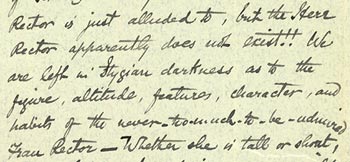 Rector is just alluded to, but the Herr
Rector apparently does not exist!! We
are left in Stygian darkness as to the
figure, altitude, features, character, and
habits of the never-too-much-to-be-admired
Frau Rector — Whether she is tall or short,